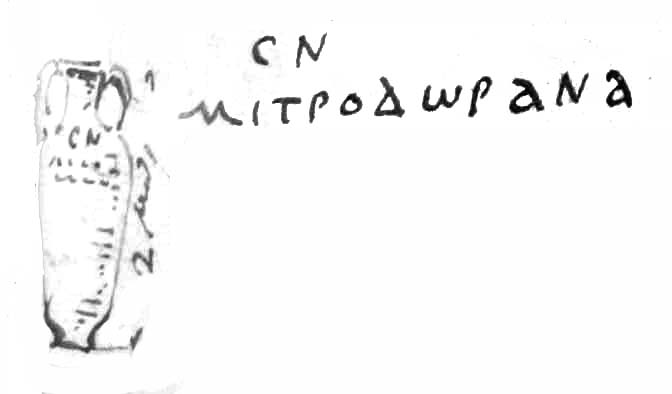 CN
ΜΙΤΡΟΔΩΡΑΝΑ
CN